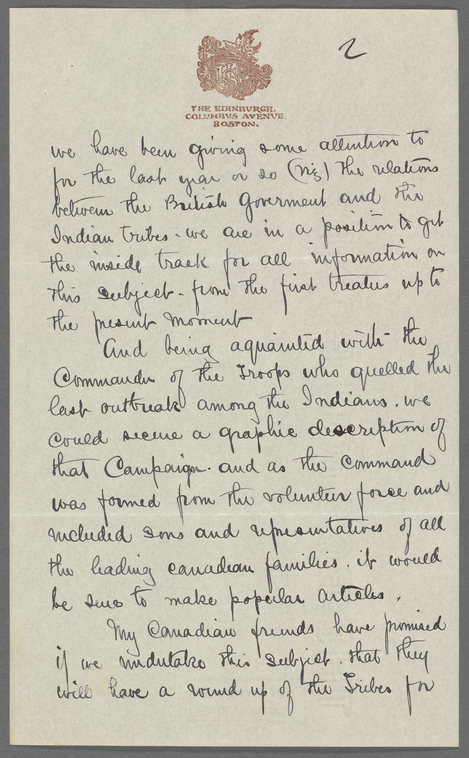 2
THE EDINBURGH.
COLUMBUS AVENUE.
BOSTON.
we have been giving some attention to
for the last year or so (viz) the relations
between the British Goverment and the
Indian tribes. we are in a position to get
the inside track for all information on
this subject. from the first treaties up to
the present moment
And being aquainted with the
Commander of the Troops who quelled the
last outbreak among the Indians. we
could secure a graphic description of
that Campaign. and as the command
was formed from the volunteer force and
included sons and representatives of all
the leading canadian families. it would
be sure to make popular articles.
My Canadian friends have promised
if we undertake this subject. that they
will have a round up of the Tribes for